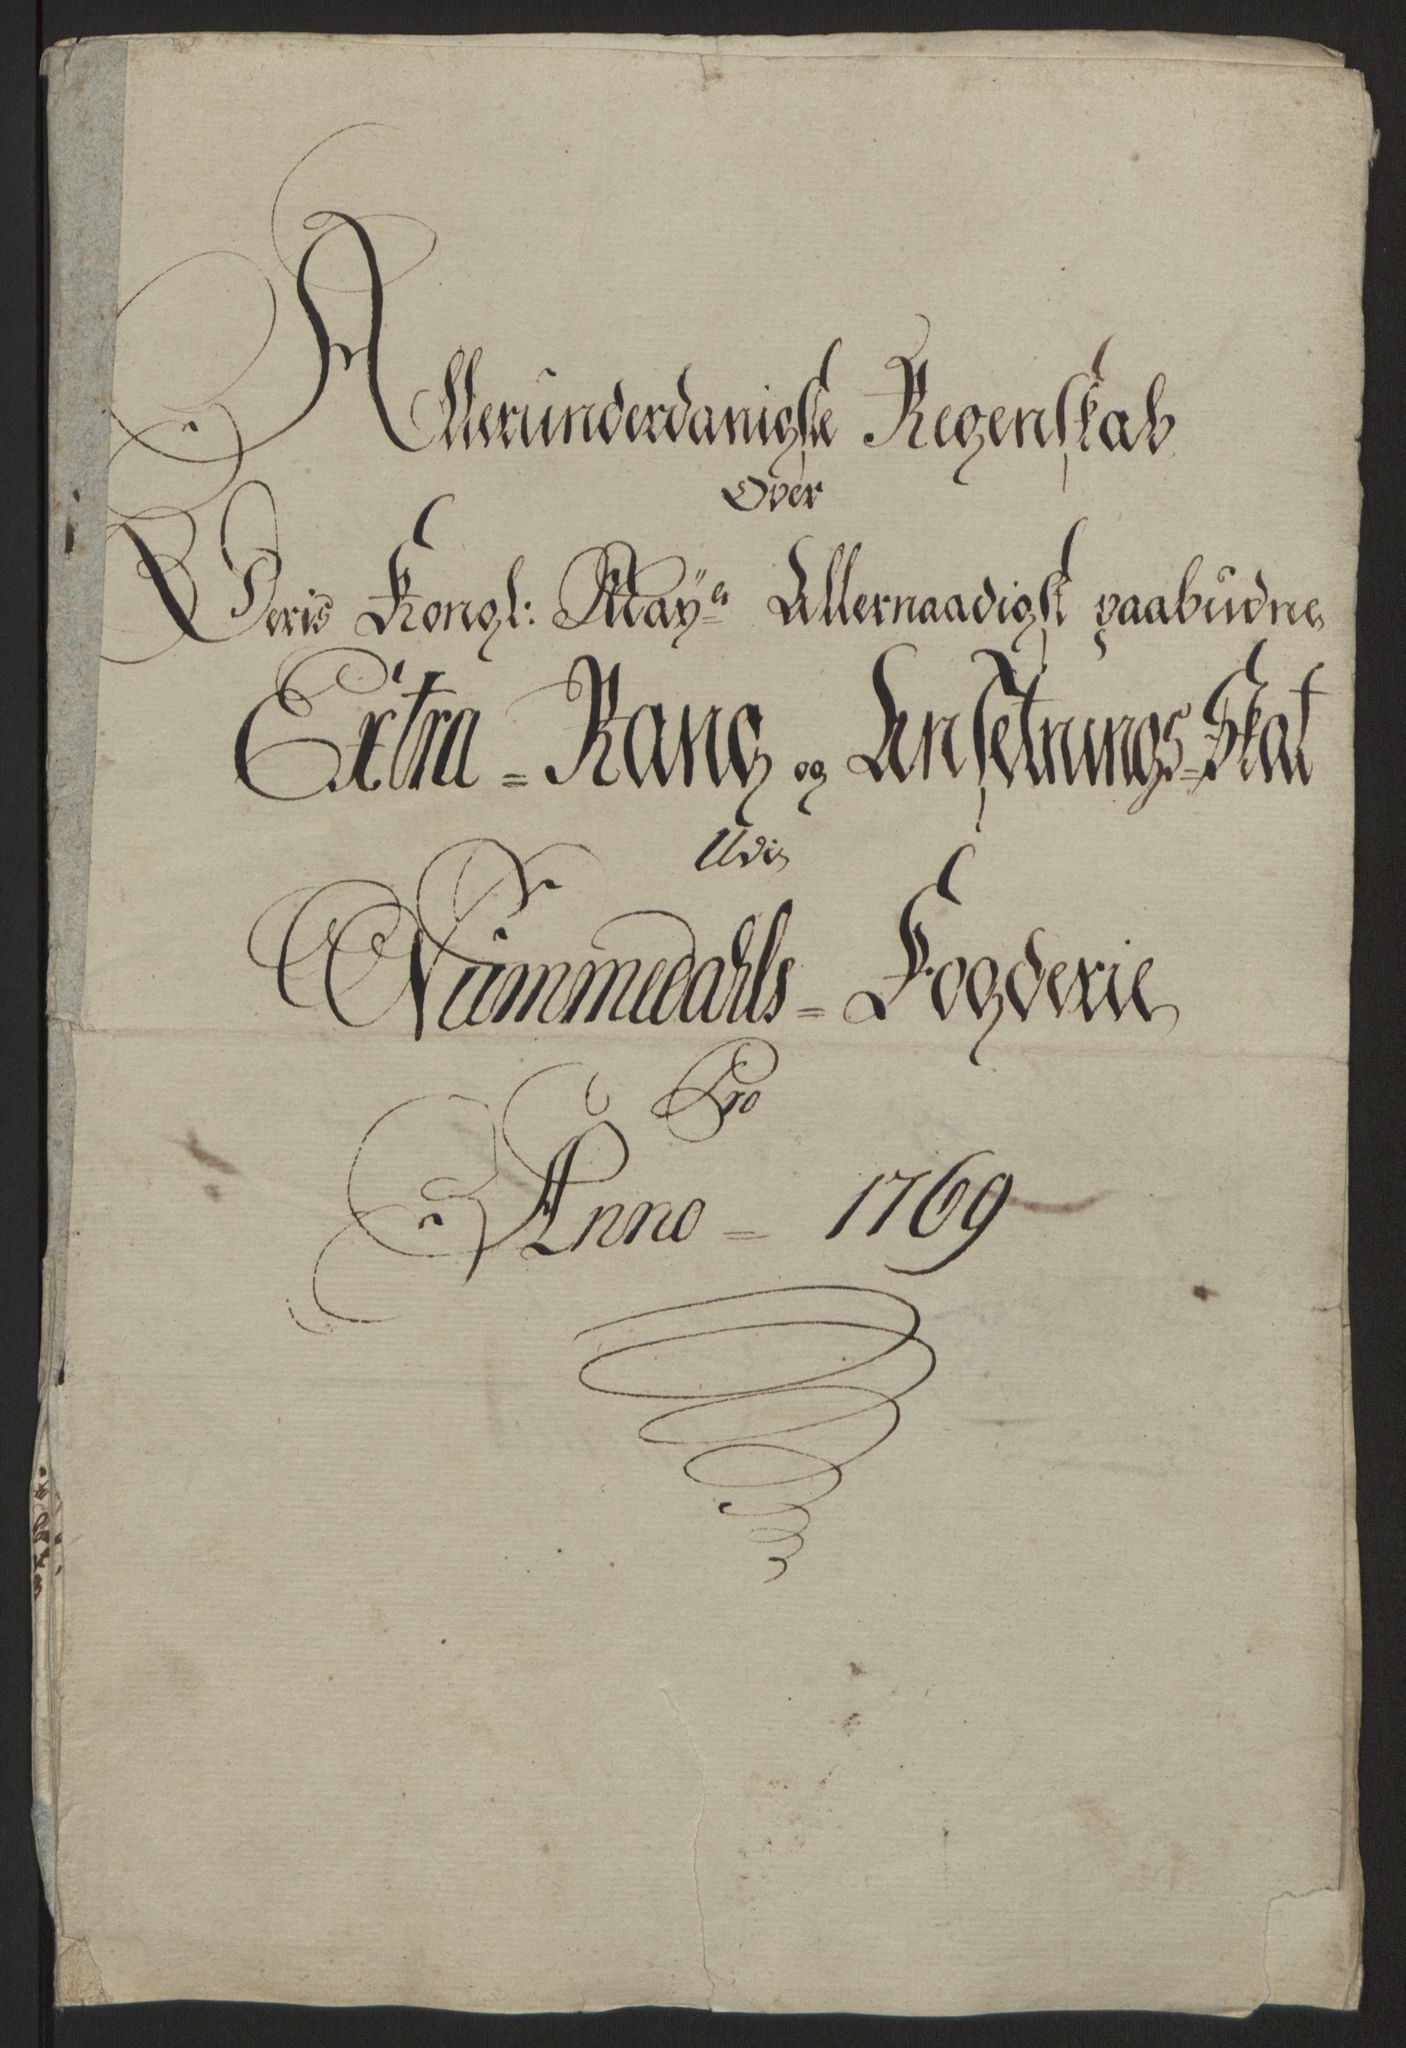 Allerunderdanigste Regenskab
Over
Deris Kongl: Mayᵗˢ Allernaadigst paabudne
Extra = Rang og Ansetnings = Skat
Udi
Nummedahls = Fogderie
Pro
Anno = 1769